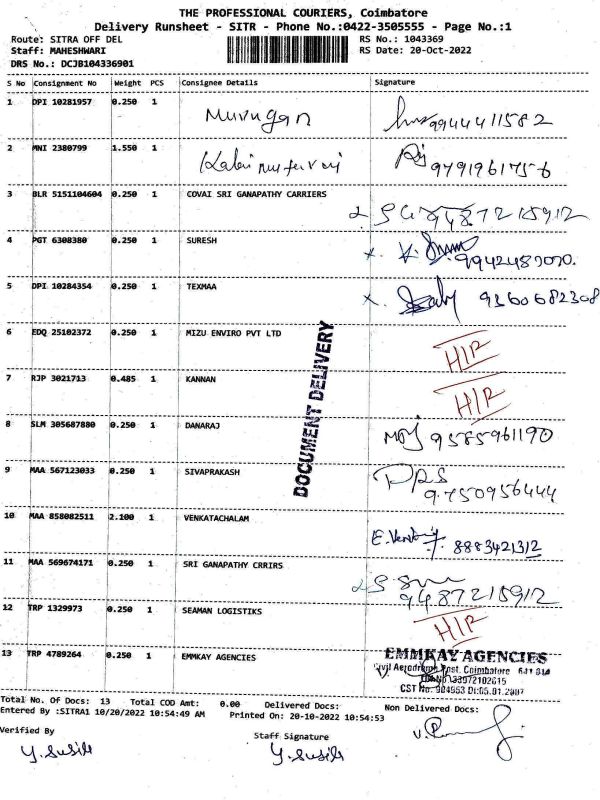 THE PROFESSIONAL COURIERS, Coimbatore
Delivery Runsheet - SITR - Phone No.:0422-3505555 - Page No.:1
Route: SITRA OFF DEL RS No.: 1043369
Staff: MAHESHWARI RS Date: 20-Oct-2022
DRS No.: DCJB104336901
S No Consignment No Weight PCS Consignee Details Signature
1 DPI 10281957 0.250 1 Murugan 9944411582
2 MNI 2380799 1.550 1 9791961756
3 BLR 5151104604 0.250 1 COVAI SRI GANAPATHY CARRIERS 9487215912
4 PGT 6308380 0.250 1 SURESH
5 DPI 10284354 0.250 1 TEXMAA 9360682308
6 EDQ 25102372 0.250 1 MIZU ENVIRO PVT LTD H/R
7 RJP 3021713 0.485 1 KANNAN H/R
8 SLM 305687880 0.250 1 DANARAJ 9585961190
9 MAA 567123033 0.250 1 SIVAPRAKASH 9750956444
10 MAA 858082511 2.100 1 VENKATACHALAM 8883421312
11 MAA 569674171 0.250 1 SRI GANAPATHY CRRIRS 9487215912
12 TRP 1329973 0.250 1 SEAMAN LOGISTIKS H/R
13 TRP 4789264 0.250 1 EMMKAY AGENCIES
DOCUMENT DELIVERY
EMMKAY AGENCIES
Civil Aerodrome Post. Coimbatore 641 014
33972102615
CST No. 904953 Dt:05.01.2007
Total No. Of Docs: 13 Total COD Amt: 0.00 Delivered Docs: Non Delivered Docs:
Entered By :SITRA1 10/20/2022 10:54:49 AM Printed On: 20-10-2022 10:54:53
Verified By Staff Signature
Y. Susila Y. Susila